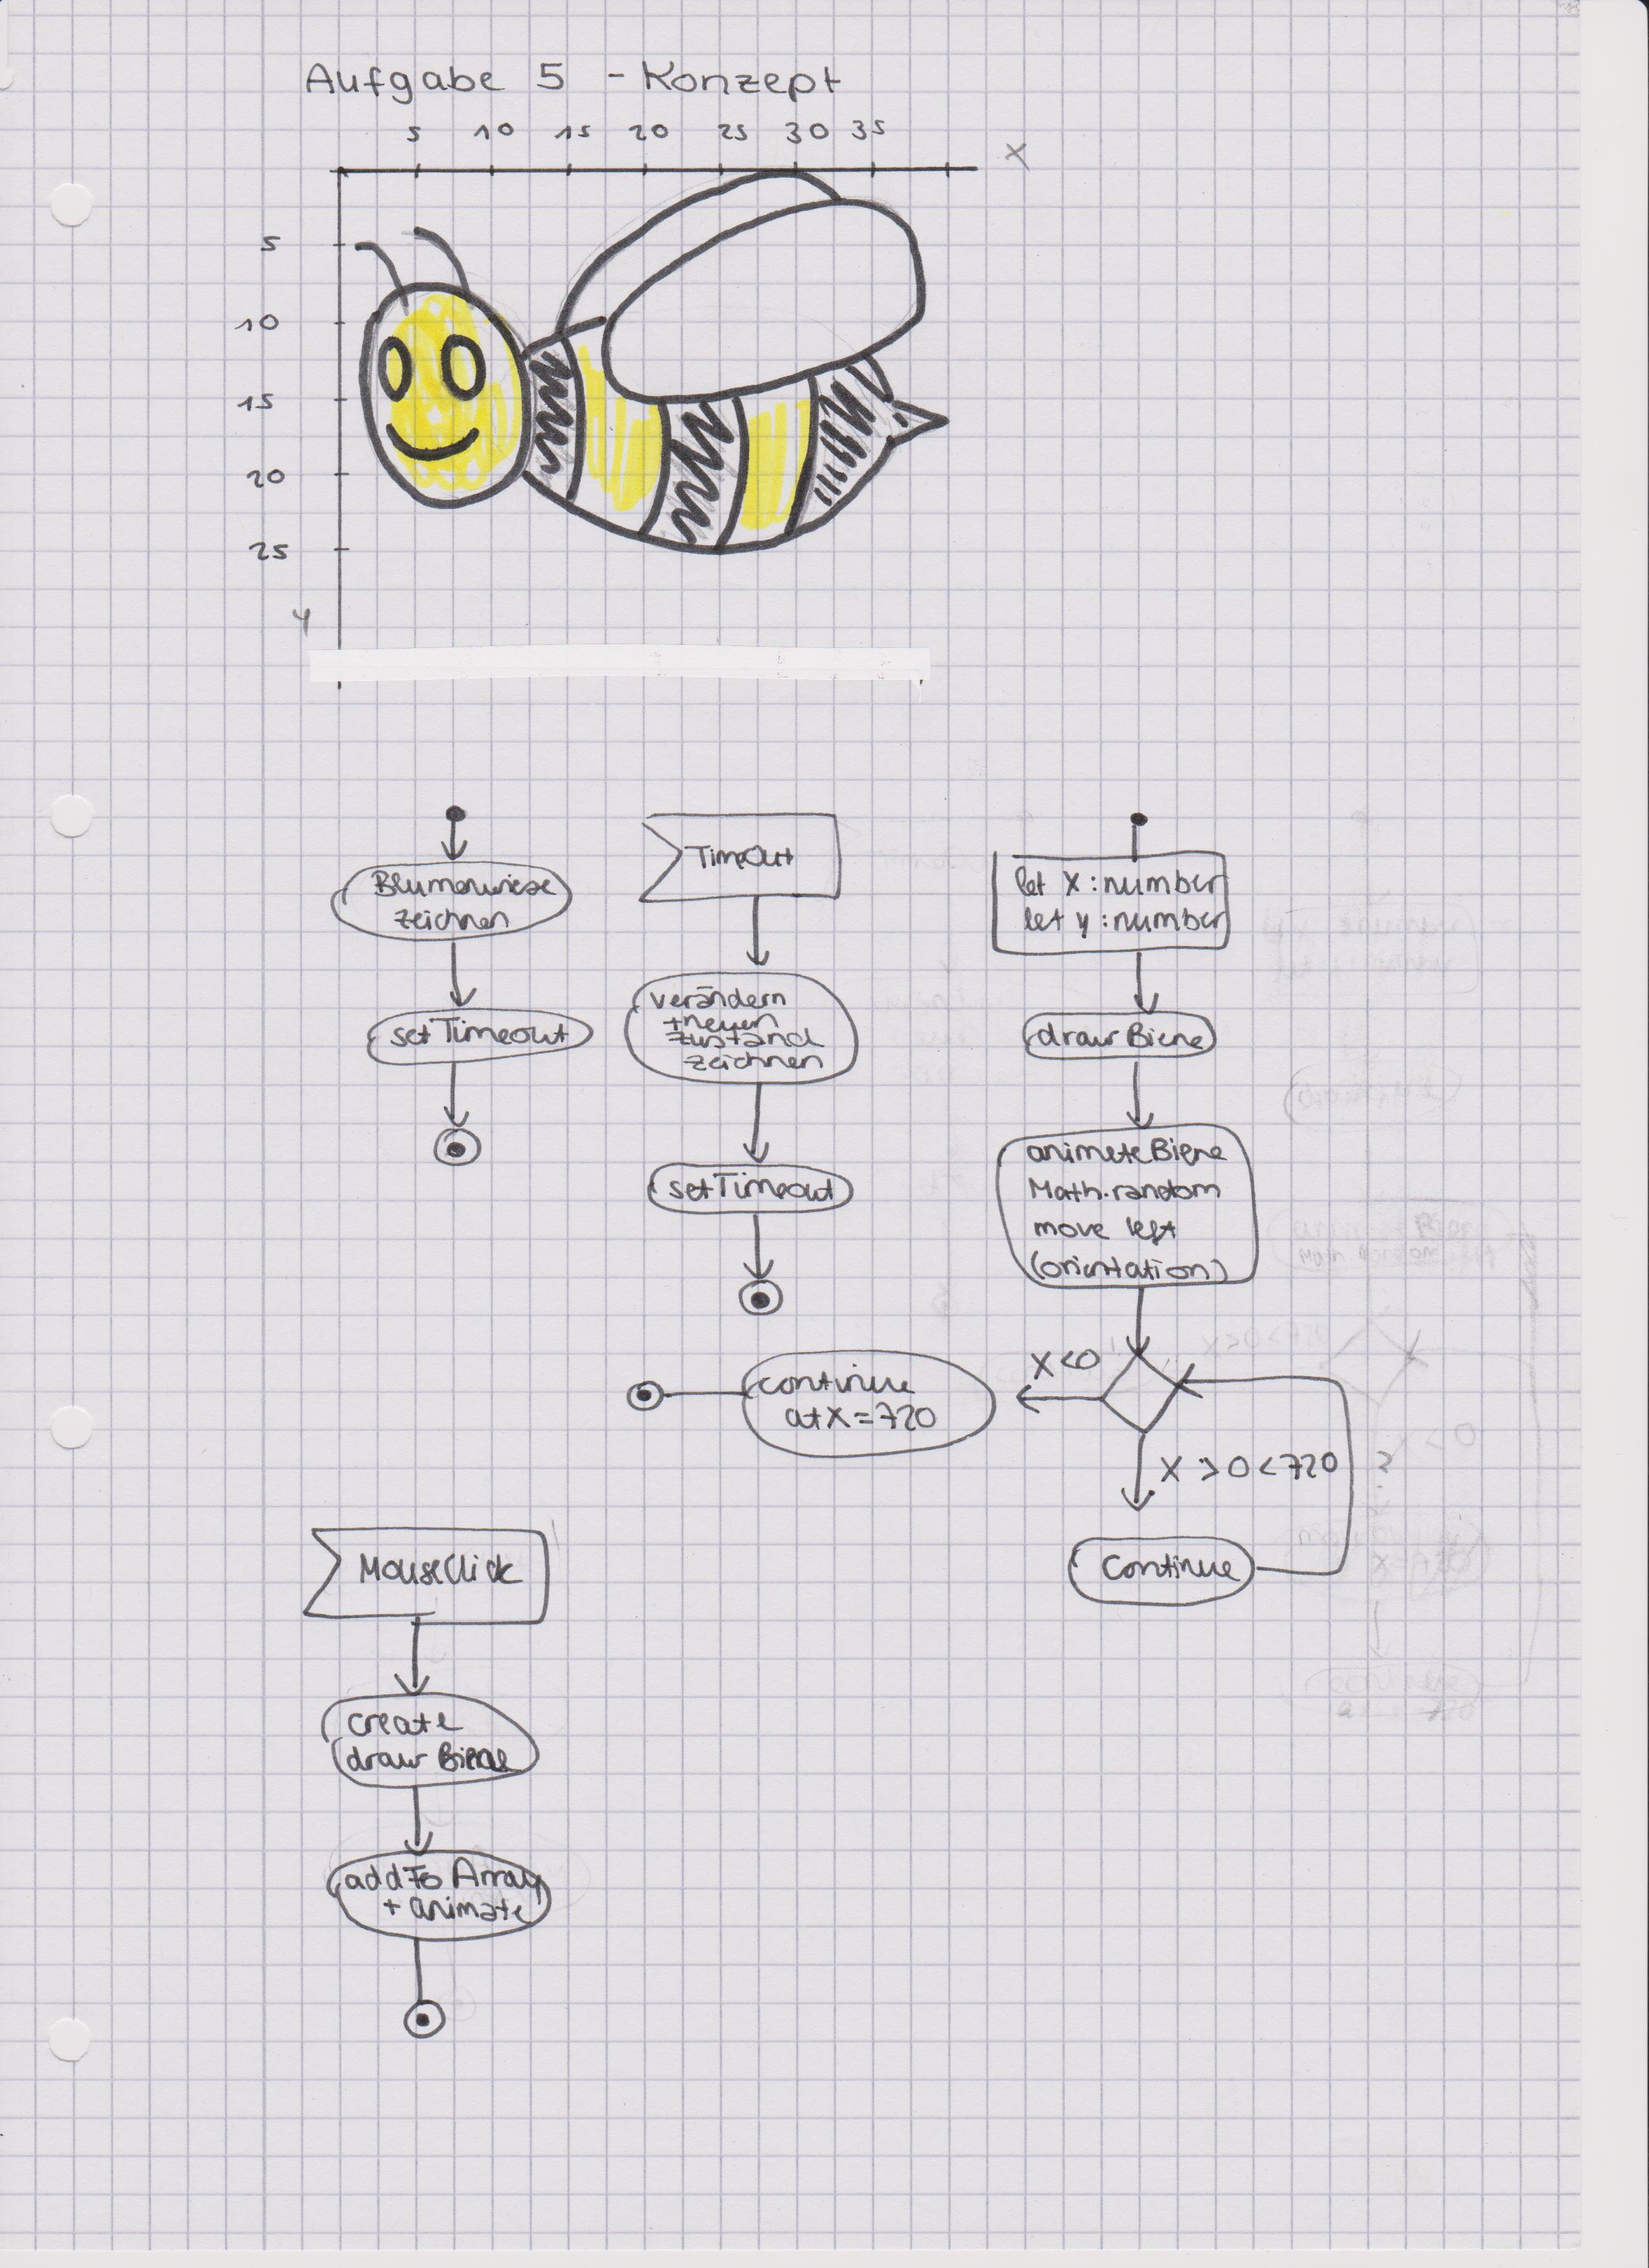 Aufgabe 5 - Konzept
5 10 15 20 25 30 35
X
5
10
15
20
25
y
Blumenwiese
zeichnen
setTimeout
TimeOut
verändern
+neuen
zustand
zeichnen
setTimeout
let x:number
let y:number
draw Biene
animate Biene
Math.random
move left
(orientation)
X<0
continue
at X=720
X >0<720
Continue
MouseClick
create
draw Biene
addTo Array
+ animate